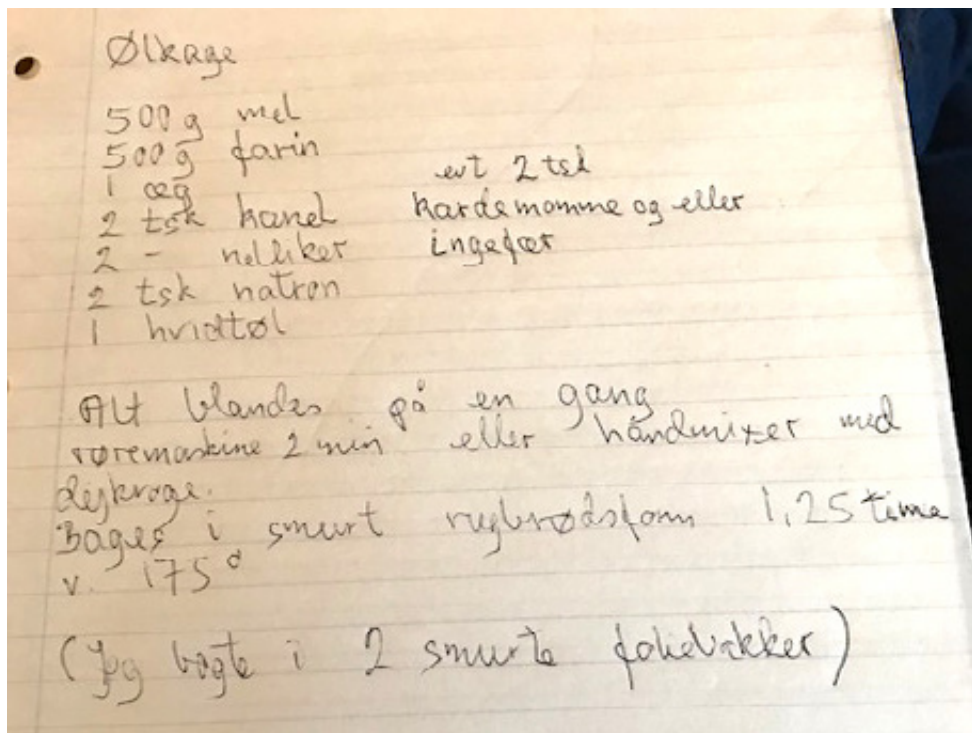 Ølkage
500 g mel
500 g farin
1 æg
2 tsk kanel
2 - nelliker
2 tsk natron
1 hvidtøl
evt 2 tsk
kardemomme og eller
ingefær
Alt blandes på en gang
røremaskine 2 min eller håndmixer med
dejkroge.
Bages i smurt rugbrødsform 1,25 time
v. 175°
(Jeg bagte i 2 smurte foliebakker)